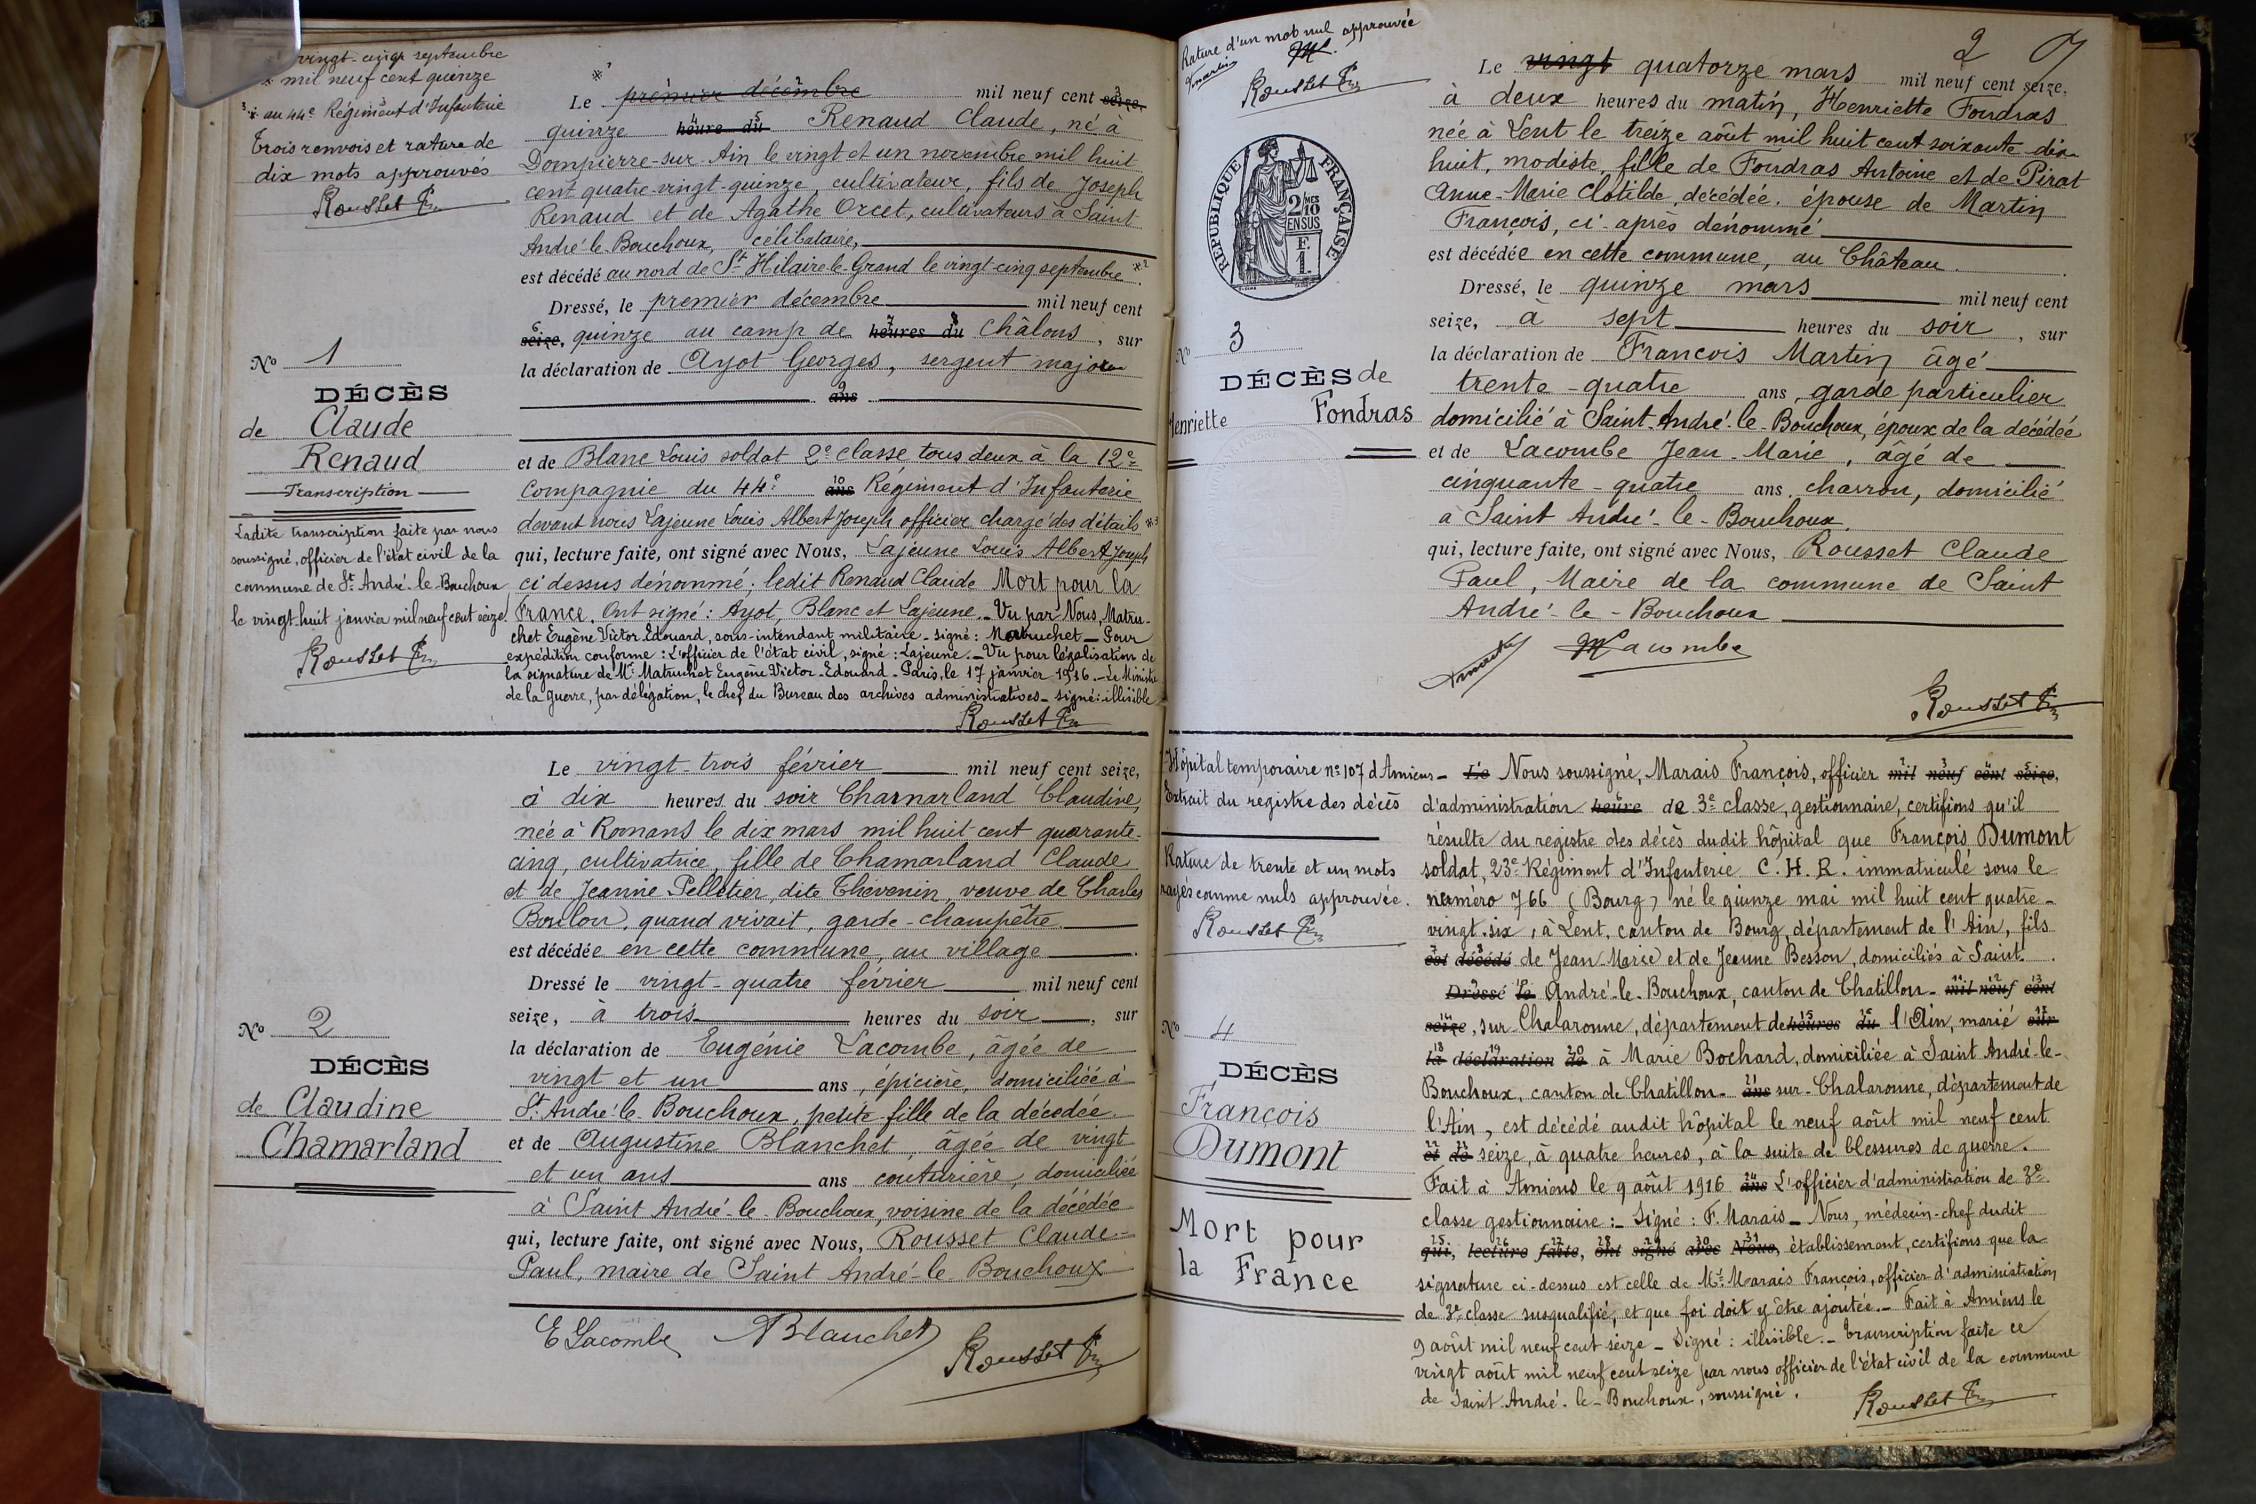 vingt-cinq septembre
mil neuf cent quinze
*3 au 44e Régiment d'Infanterie
Trois renvois et rature de
dix mots approuvés
Rousset
No 1
DÉCÈS
de Claude
Renaud
Transcription
Ladite transcription faite par nous
soussigné, officier de l'état civil de la
commune de St André-le-Bouchoux
le vingt-huit janvier mil neuf cent seize
Rousset
Le premier décembre mil neuf cent seize,
quinze heure du Renaud Claude, né à
Dompierre-sur-Ain le vingt et un novembre mil huit
cent quatre-vingt-quinze, cultivateur, fils de Joseph
Renaud et de Agathe Orcet, cultivateurs à Saint
André-le-Bouchoux, célibataire,
est décédé au nord de St Hilaire-le-Grand le vingt-cinq septembre *2.
Dressé, le premier décembre mil neuf cent
seize, quinze au camp de heures du Châlons, sur
la déclaration de Ayot Georges, sergent major
ans
et de Blanc Louis soldat 2e classe tous deux à la 12e
Compagnie du 44e ans Régiment d'Infanterie
devant nous Lajeune Louis Albert Joseph officier chargé des détails *3
qui, lecture faite, ont signé avec Nous, Lajeune Louis Albert Joseph
ci dessus dénommé; ledit Renaud Claude Mort pour la
France. Ont signé: Ayot, Blanc et Lajeune. - Vu par Nous, Matru-
chet Eugène Victor Edouard, sous-intendant militaire - signé: Matruchet - Pour
expédition conforme: L'officier de l'état civil, signé: Lajeune. - Vu pour légalisation de
la signature de Mr Matruchet Eugène-Victor-Edouard - Paris, le 17 janvier 1916. - Le Ministre
de la guerre, par délégation, le chef du Bureau des archives administratives - signé: illisible
Rousset
No 2
DÉCÈS
de Claudine
Chamarland
Le vingt-trois février mil neuf cent seize,
à dix heures du soir Chamarland Claudine,
née à Romans le dix mars mil huit cent quarante-
cinq, cultivatrice, fille de Chamarland Claude
et de Jeanne Pelletier, dite Thévenin, veuve de Charles
Boulon, quand vivait, garde-champêtre
est décédée en cette commune, au village.
Dressé le vingt-quatre février mil neuf cent
seize, à trois heures du soir, sur
la déclaration de Eugénie Lacombe, âgée de
vingt et un ans, épicière, domiciliée à
St André-le-Bouchoux, petite-fille de la décédée
et de Augustine Blanchet, âgée de vingt
et un ans ans couturière, domiciliée
à Saint André-le-Bouchoux, voisine de la décédée
qui, lecture faite, ont signé avec Nous, Rousset Claude-
Paul, maire de Saint André-le-Bouchoux
E Lacombe ABlanchet Rousset
2
Rature d'un mot nul approuvée
Martin
Rousset
RÉPUBLIQUE FRANÇAISE
2/10 MES
EN SUS
F.
1.
No 3
DÉCÈS de
Henriette Fondras
Le vingt quatorze mars mil neuf cent seize,
à deux heures du matin, Henriette Fondras
née à Lent le treize août mil huit cent soixante-dix-
huit, modiste, fille de Fondras Antoine et de Pirat
Anne-Marie Clotilde, décédée. épouse de Martin
François, ci-après dénommé
est décédée en cette commune, au Château.
Dressé, le quinze mars mil neuf cent
seize, à sept heures du soir, sur
la déclaration de François Martin âgé
trente-quatre ans, garde particulier
domicilié à Saint-André-le-Bouchoux, époux de la décédée
et de Lacombe Jean-Marie, âgé de
cinquante-quatre ans, charron, domicilié
à Saint André-le-Bouchoux.
qui, lecture faite, ont signé avec Nous, Rousset Claude
Paul, Maire de la commune de Saint
André-le-Bouchoux
Martin Lacombe
Rousset
Hôpital temporaire no 107 d'Amiens -
Extrait du registre des décès
Rature de trente et un mots
rayés comme nuls approuvée.
Rousset
No 4
DÉCÈS
François
Dumont
Mort pour
la France
Le Nous soussigné, Marais François, officier mil neuf cent seize,
d'administration heure de 3e classe, gestionnaire, certifions qu'il
résulte du registre des décès dudit hôpital que François Dumont
soldat, 23e Régiment d'Infanterie C. H. R. immatriculé sous le
numéro 766 (Bourg) né le quinze mai mil huit cent quatre-
vingt-six, à Lent, canton de Bourg, département de l'Ain, fils
est décédé de Jean Marie et de Jeanne Besson, domiciliés à Saint.
Dressé le André-le-Bouchoux, canton de Chatillon- mil neuf cent
seize, sur-Chalaronne, département de heures du l'Ain, marié sur
la déclaration de à Marie Bochard, domiciliée à Saint André-le-
Bouchoux, canton de Chatillon- ans sur-Chalaronne, département de
l'Ain, est décédé audit hôpital le neuf août mil neuf cent
et de seize, à quatre heures, à la suite de blessures de guerre.
Fait à Amiens le 9 août 1916 ans L'officier d'administration de 3e
classe gestionnaire: - Signé: F. Marais - Nous, médecin-chef dudit
qui, lecture faite, ont signé avec Nous, établissement, certifions que la
signature ci-dessus est celle de Mr Marais François, officier d'administration
de 3e classe susqualifié, et que foi doit y être ajoutée. - Fait à Amiens le
9 août mil neuf cent seize - Signé: illisible. - transcription faite ce
vingt août mil neuf cent seize par nous officier de l'état civil de la commune
de Saint-André-le-Bouchoux, soussigné.
Rousset